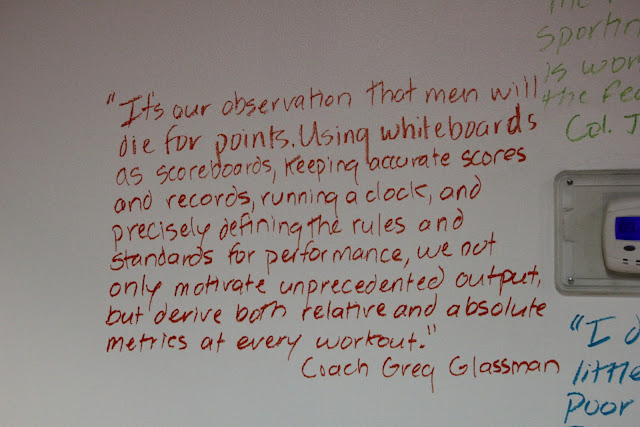 "It's our observation that men will
die for points. Using whiteboards
as scoreboards, keeping accurate scores
and records, running a clock, and
precisely defining the rules and
standards for performance, we not
only motivate unprecedented output,
but derive both relative and absolute
metrics at every workout."
Coach Greg Glassman
is
the
Col. J
"I
little
Poor